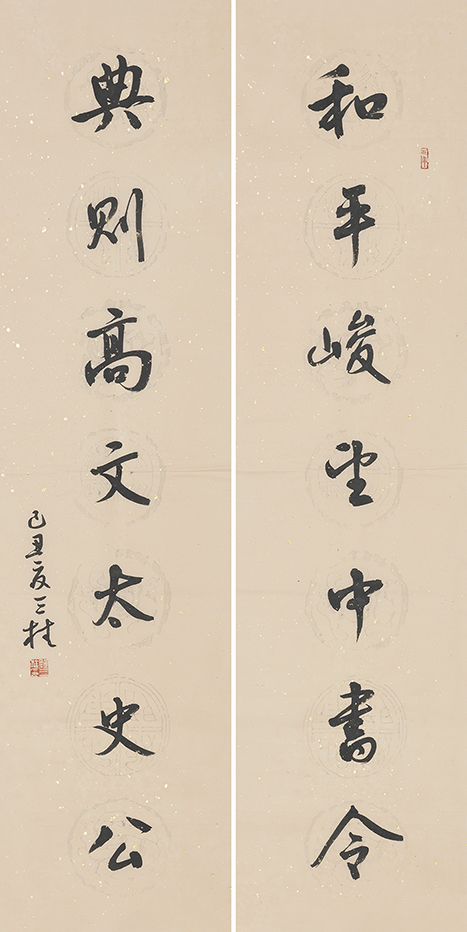 和平峻望中書令
典則高文太史公
己丑夏三桂